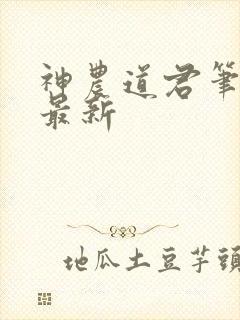 神農道君筆
最新
地瓜土豆芋頭